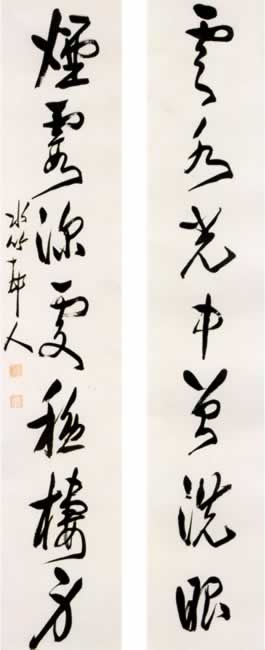 雲水光中曾洗眼
煙霞深處穩棲身
水竹邨人